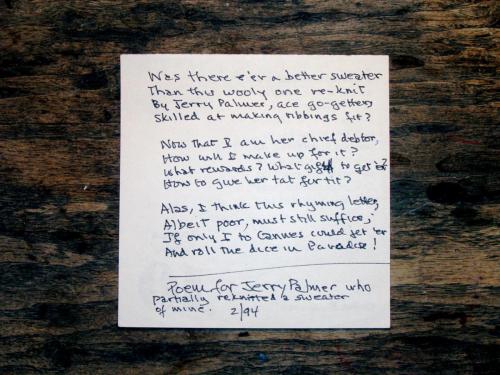 Was there e'er a better sweater
Than this wooly one re-knit
By Jerry Palmer, ace go-getter,
Skilled at making ribbings fit?
Now that I am her chief debtor,
How will I make up for it?
What rewards? What gifts to get 'er?
How to give her tat for tit?
Alas, I think this rhyming letter,
Albeit poor, must still suffice;
If only I to Cannes could get 'er
And roll the dice in Paradise!
Poem for Jerry Palmer who
partially reknitted a sweater
of mine. 2/94